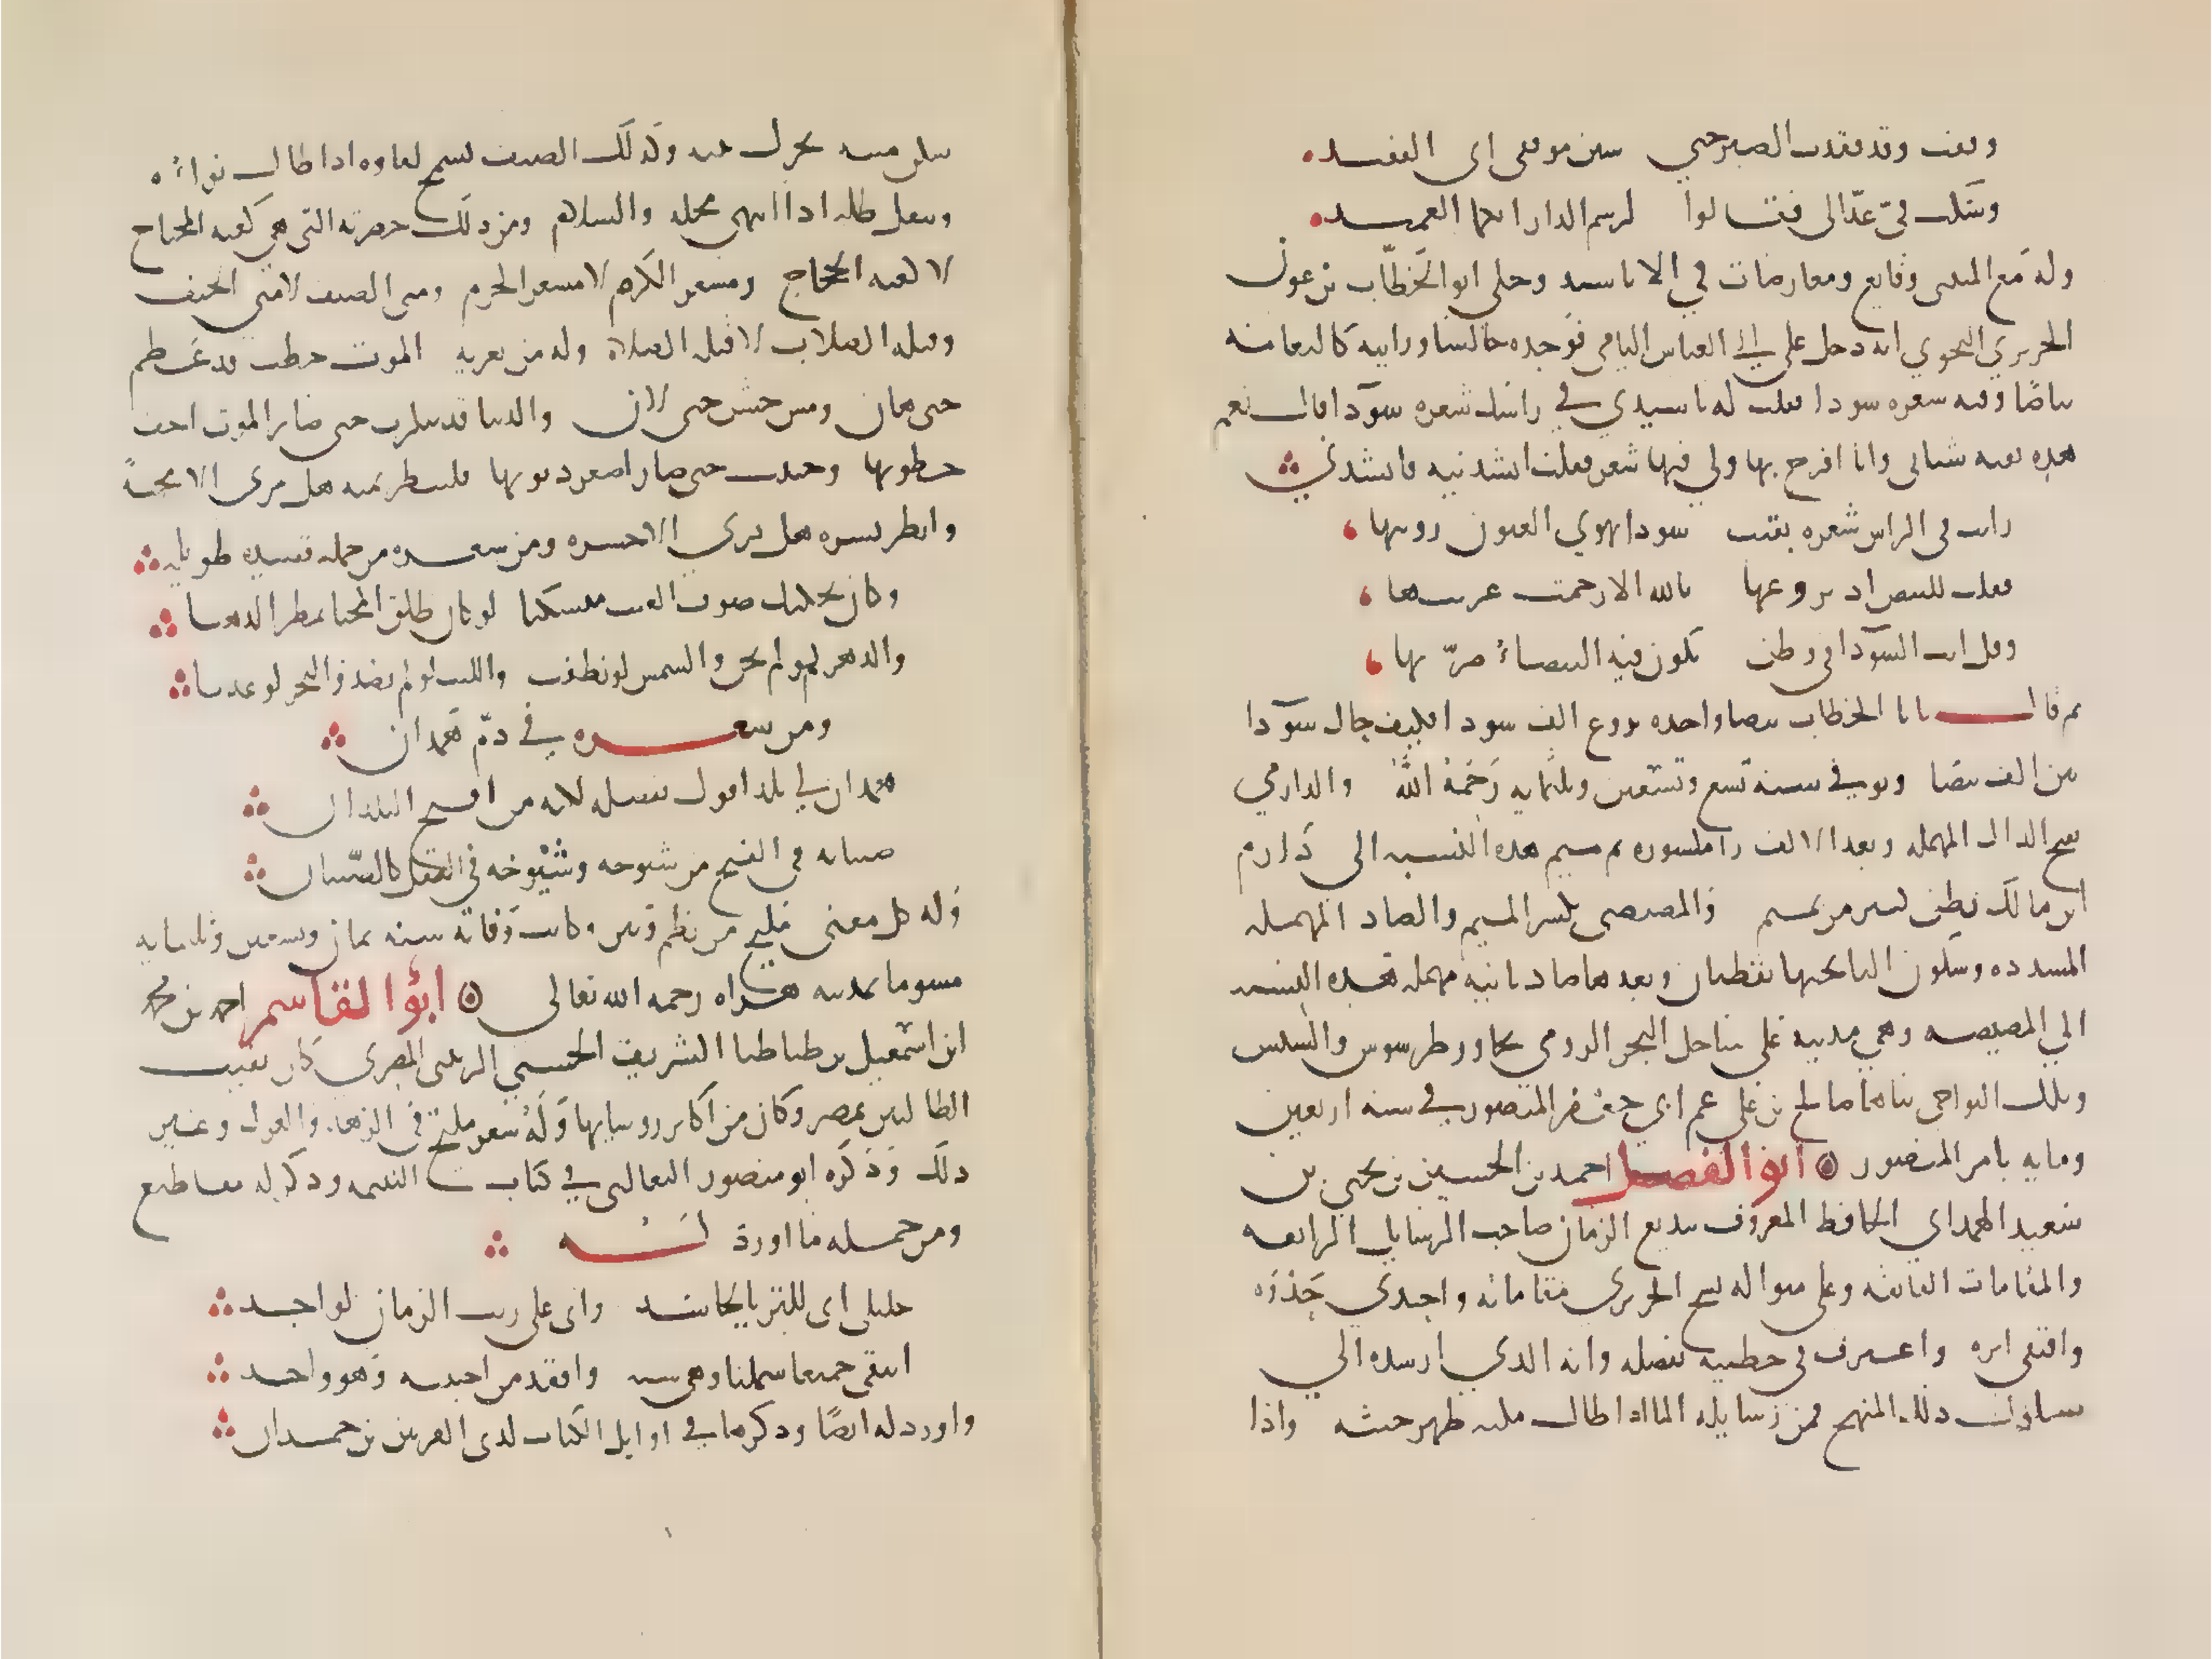 وقفت وقد فقدت الصبر حتى تبين موقفي اني الفقيد
وشكت في عذالي فقالوا لرسم الدار ايكما العميد
وله مع المتنبي وقايع ومعارضات في الاناشيد وحكى ابو الخطاب بن عون
الحريري النحوي انه دخل على ابي العباس النامي فوجده جالسا ورايته كالثغامة
بياضا وفيه شعره سودا فقلت له يا سيدي في راسك شعره سودا فقال نعم
هذه بقية شبابي وانا افرح بها ولي فيها شعر فقلت انشدنيه فانشدني
رايت في الراس شعره بقيت سودا تهوي العيون رويتها
فقلت للبيض اذ تروعها بالله الا رحمت غربتها
وقل لبث السودا في وطن تكون فيه البيضاء ضرتها
ثم قال يابا الخطاب بيضا واحده تروع الف سودا فكيف حال سودا
بين الف بيضا وتوفي سنة تسع وتسعين وثلثمايه رحمه الله والدارمي
بفتح الدال المهمله وبعد الالف را مكسوره ثم ميم هذه النسبه الى دارم
ابن مالك بطن كبير من تميم والمصيصي بكسر الميم والصاد المهمله
المشدده وسكون اليا تحتها نقطتان وبعدها صاد ثانيه مهمله هذه النسبه
الي المصيصه وهي مدينه على ساحل البحر الرومي تجاور طرسوس والسيس
وتلك النواحي بناها صالح بن علي عم ابي جعفر المنصور في سنه اربعين
ومايه بامر المنصور ابو الفضل احمد بن الحسين بن يحيى بن
سعيد الهمداني الحافظ المعروف ببديع الزمان صاحب الرسايل الرايقه
والمقامات الفايقه وعلى منواله نسج الحريري مقاماته واحتذى حذوه
واقتفى اثره واعترف في خطبته بفضله وانه الذي ارشده الي
سلوك ذلك المنهج فمن رسايله الما اذا طال مكثه ظهر خبثه واذا
سكن متنه تحرك نتنه وكذلك الضيف يسمج لقاوه اذا طال ثواءه
ويثقل ظله اذا انتهى محله والسلام ومن ذلك حضرته التي هي كعبه المحتاج
لا كعبه الحجاج ومشعر الكرم لا مشعر الحرم ومنى الضيف لا منى الخيف
وقبله الصلات لا قبله الصلاة وله من تعزيه الموت خطب قد عظم
حتى هان ومس خشن حتى لان والدنيا قد تنكرت حتى صار الموت اخف
خطوبها وخبثت حتى صار اصغر ذنوبها فلينظر يمنه هل يرى الا محنة
وانظر يسره هل يري الا حسره ومن شعره من جمله قصيده طويله
وكان يحكيك صوب الغيث منسكبا لو كان طلق المحيا يمطر الذهبا
والدهر لو لم يخن والشمس لو نطقت والليث لو لم يصد والبحر لو عذبا
ومن شعره في ذم همدان
همدان لي بلد اقول بفضله لكنه من اقبح البلدان
صبيانه في القبح مثل شيوخه وشيوخه في العقل كالصبيان
وله كل معنى مليح من نظم ونثر وكانت وفاته سنه ثمان وتسعين وثلثمايه
مسموما بمدينه هراه رحمه الله تعالى ابو القاسم احمد بن محمد
ابن اسمعيل بن طباطبا الشريف الحسني الرسي المصري كان نقيب
الطالبيين بمصر وكان من اكابر روسايها وله شعر مليح في الزهد والغزل وغير
ذلك وذكره ابو منصور الثعالبي في كتاب اليتيمه وذكر له مقاطيع
ومن جمله ما اورد له
خليلي اني للثريا لحاسد واني على ريب الزمان لواجد
ايبقى جميعا شملها وهي سته وافقد من احببته وهو واحد
واورد له ايضا وذكرها في اوايل الكتاب لذي القرنين بن حمدان